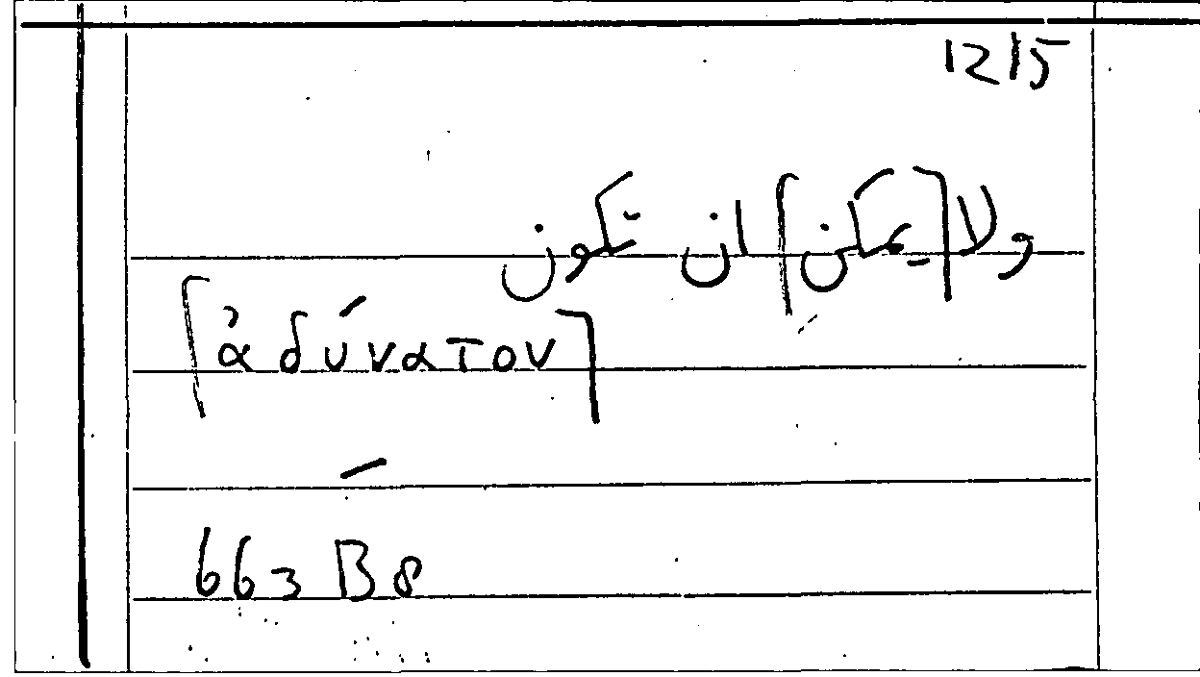 1215
ولا [يمكن] ان تكون
[ἀδύνατον]
663 B 8